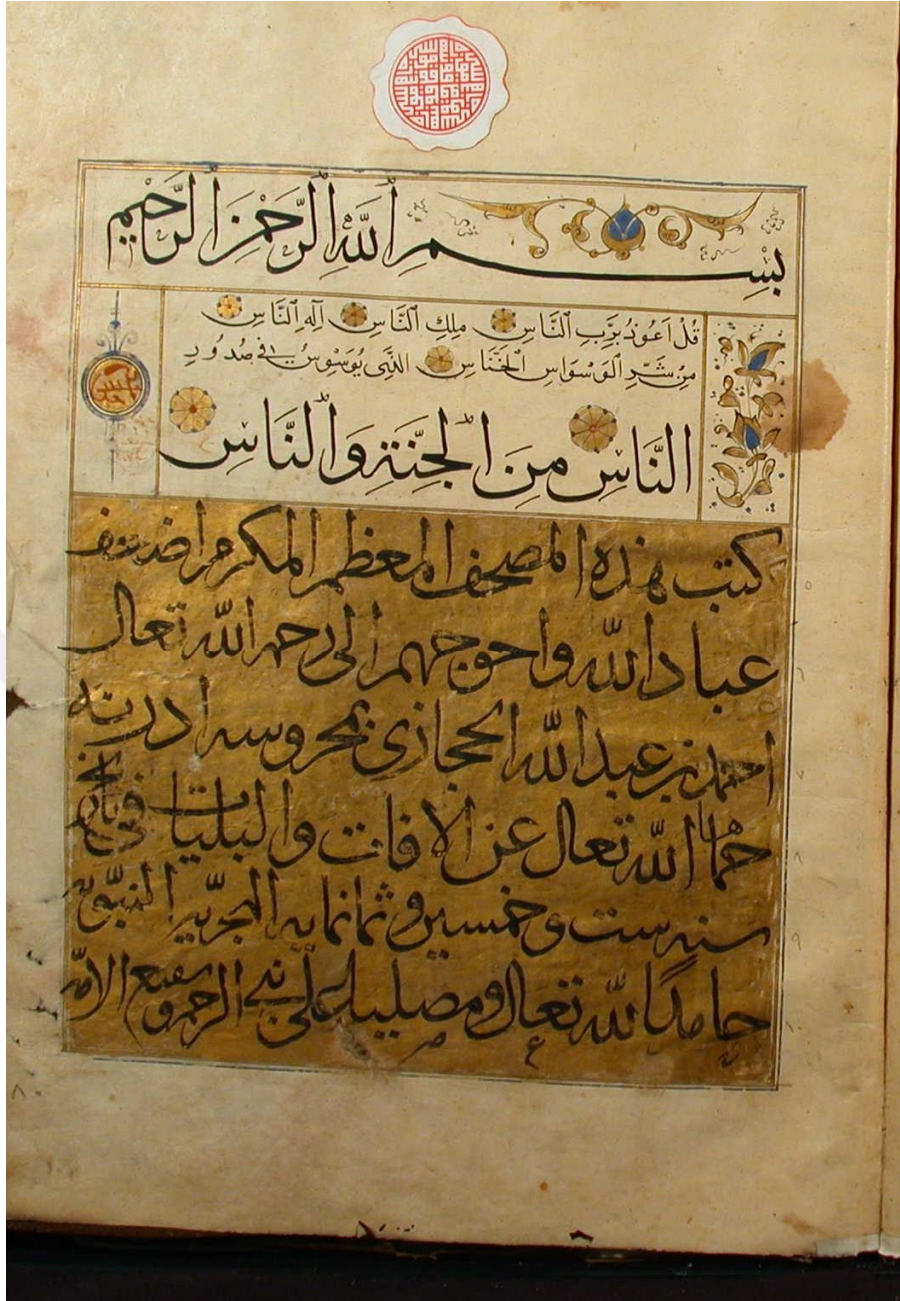 بِسْمِ ٱللَّهِ ٱلرَّحْمَنِ ٱلرَّحِيمِ
قُلْ اَعُوذُ بِرَبِّ ٱلنَّاسِ مَلِكِ ٱلنَّاسِ اِلَهِ ٱلنَّاسِ
مِنْ شَرِّ ٱلْوَسْوَاسِ ٱلْخَنَّاسِ الَّذِى يُوَسْوِسُ فِى صُدُورِ
النَّاسِ مِنَ ٱلْجِنَّةِ وَٱلنَّاسِ
كتب هذه المصحف المعظم المكرم اضعف
عباد الله واحوجهم الى رحمه الله تعالى
احمد بن عبد الله الحجازى بمحروسه ادرنه
حماها الله تعالى عن الافات والبليات فى تاريخ
سنه ست وخمسين وثمانمايه الهجريه النبويه
حامدًا لله تعالى ومصليا على نبى الرحمه وشفيع الامه